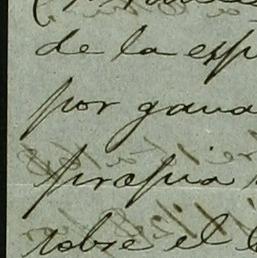 de la esp
por gana
propia
sobre el